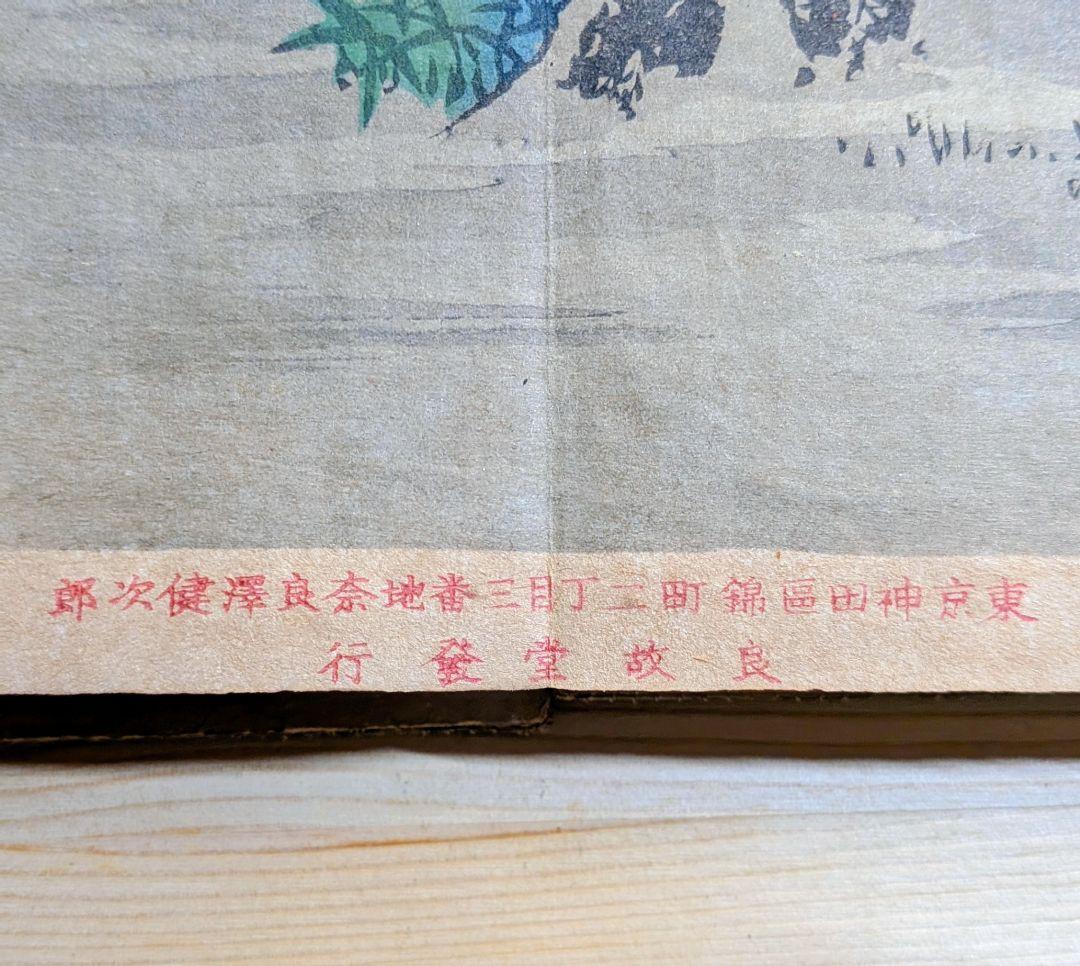 東京神田區錦町二丁目三番地奈良澤健次郎
良故堂發行